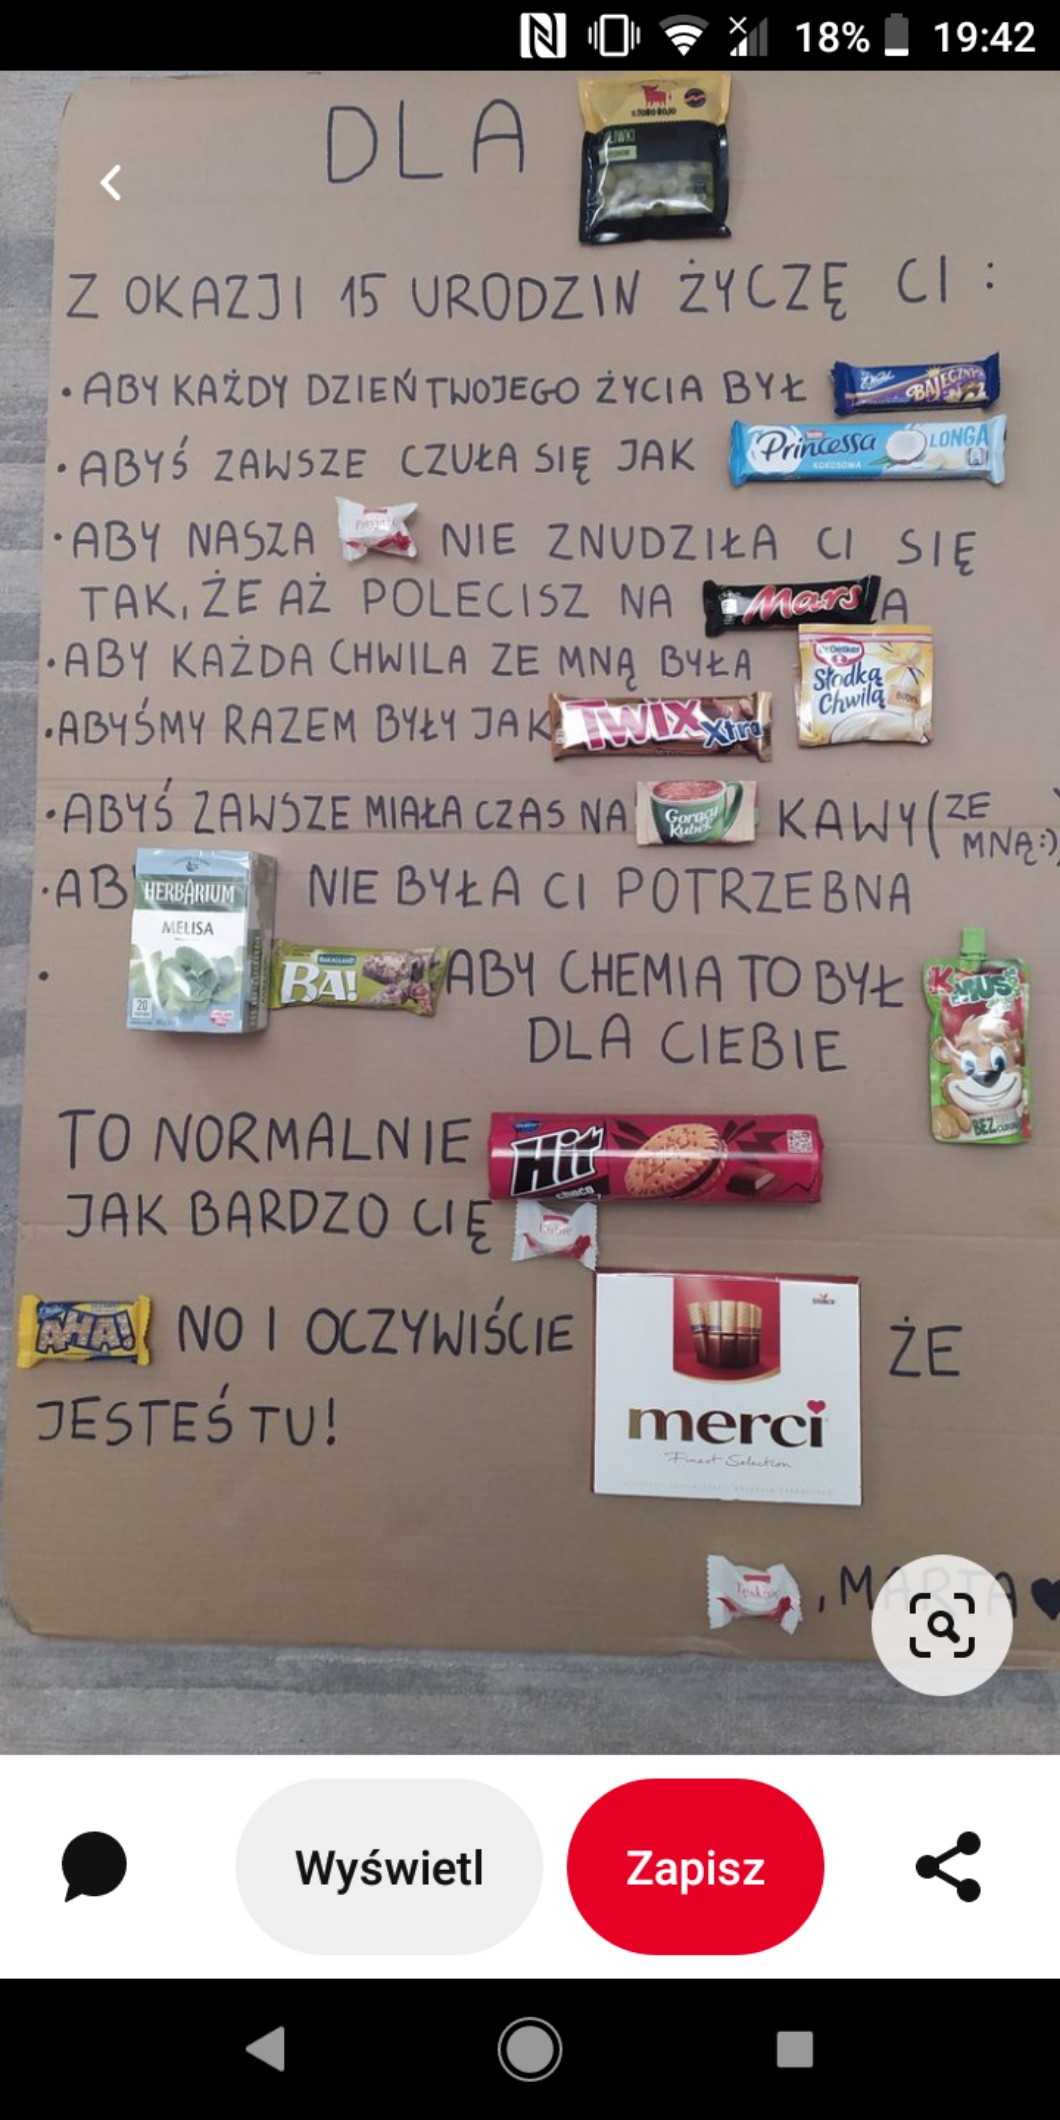 18% 19:42
DLA
EL TORO ROJO
Z OKAZJI 15 URODZIN ŻYCZĘ CI :
• ABY KAŻDY DZIEŃ TWOJEGO ŻYCIA BYŁ BAJECZNY
• ABYŚ ZAWSZE CZUŁA SIĘ JAK Princessa LONGA
KOKOSOWA
• ABY NASZA NIE ZNUDZIŁA CI SIĘ
TAK, ŻE AŻ POLECISZ NA Mars A
• ABY KAŻDA CHWILA ZE MNĄ BYŁA Dr. Oetker Słodka Chwila
• ABYŚMY RAZEM BYŁY JAK TWIX Xtra
• ABYŚ ZAWSZE MIAŁA CZAS NA Gorący Kubek KAWY (ZE MNĄ :)
• AB HERBARIUM MELISA 20 NIE BYŁA CI POTRZEBNA
• BAKALLAND BA! ABY CHEMIA TO BYŁ MUS
DLA CIEBIE
BEZ
TO NORMALNIE Hit choco
JAK BARDZO CIĘ
AHA! NO I OCZYWIŚCIE merci Finest Selection ŻE
STORCK
JESTEŚ TU!
, MARTA
Wyświetl Zapisz